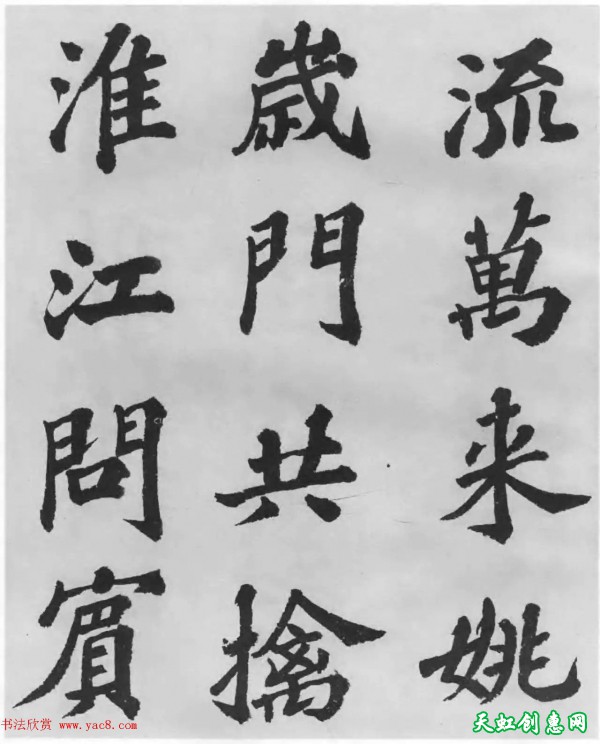 流萬来姚
歲門共擒
淮江問賔
书法欣赏 www.yac8.com
天虹创惠网